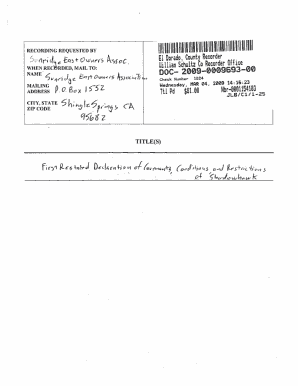 RECORDING REQUESTED BY
Sunridge East Owners Assoc.
WHEN RECORDED, MAIL TO:
NAME Sunridge East Owners Association
MAILING
ADDRESS P.O Box 1552
CITY, STATE Shingle Springs CA
ZIP CODE 95682
El Dorado, County Recorder
William Schultz Co Recorder Office
DOC- 2009-0009693-00
Check Number 1024
Wednesday, MAR 04, 2009 14:16:23
Ttl Pd $81.00 Nbr-0001154183
JLB/C1/1-25
TITLE(S)
First Restated Declaration of Covenants, Conditions and Restrictions
of Shadowhawk